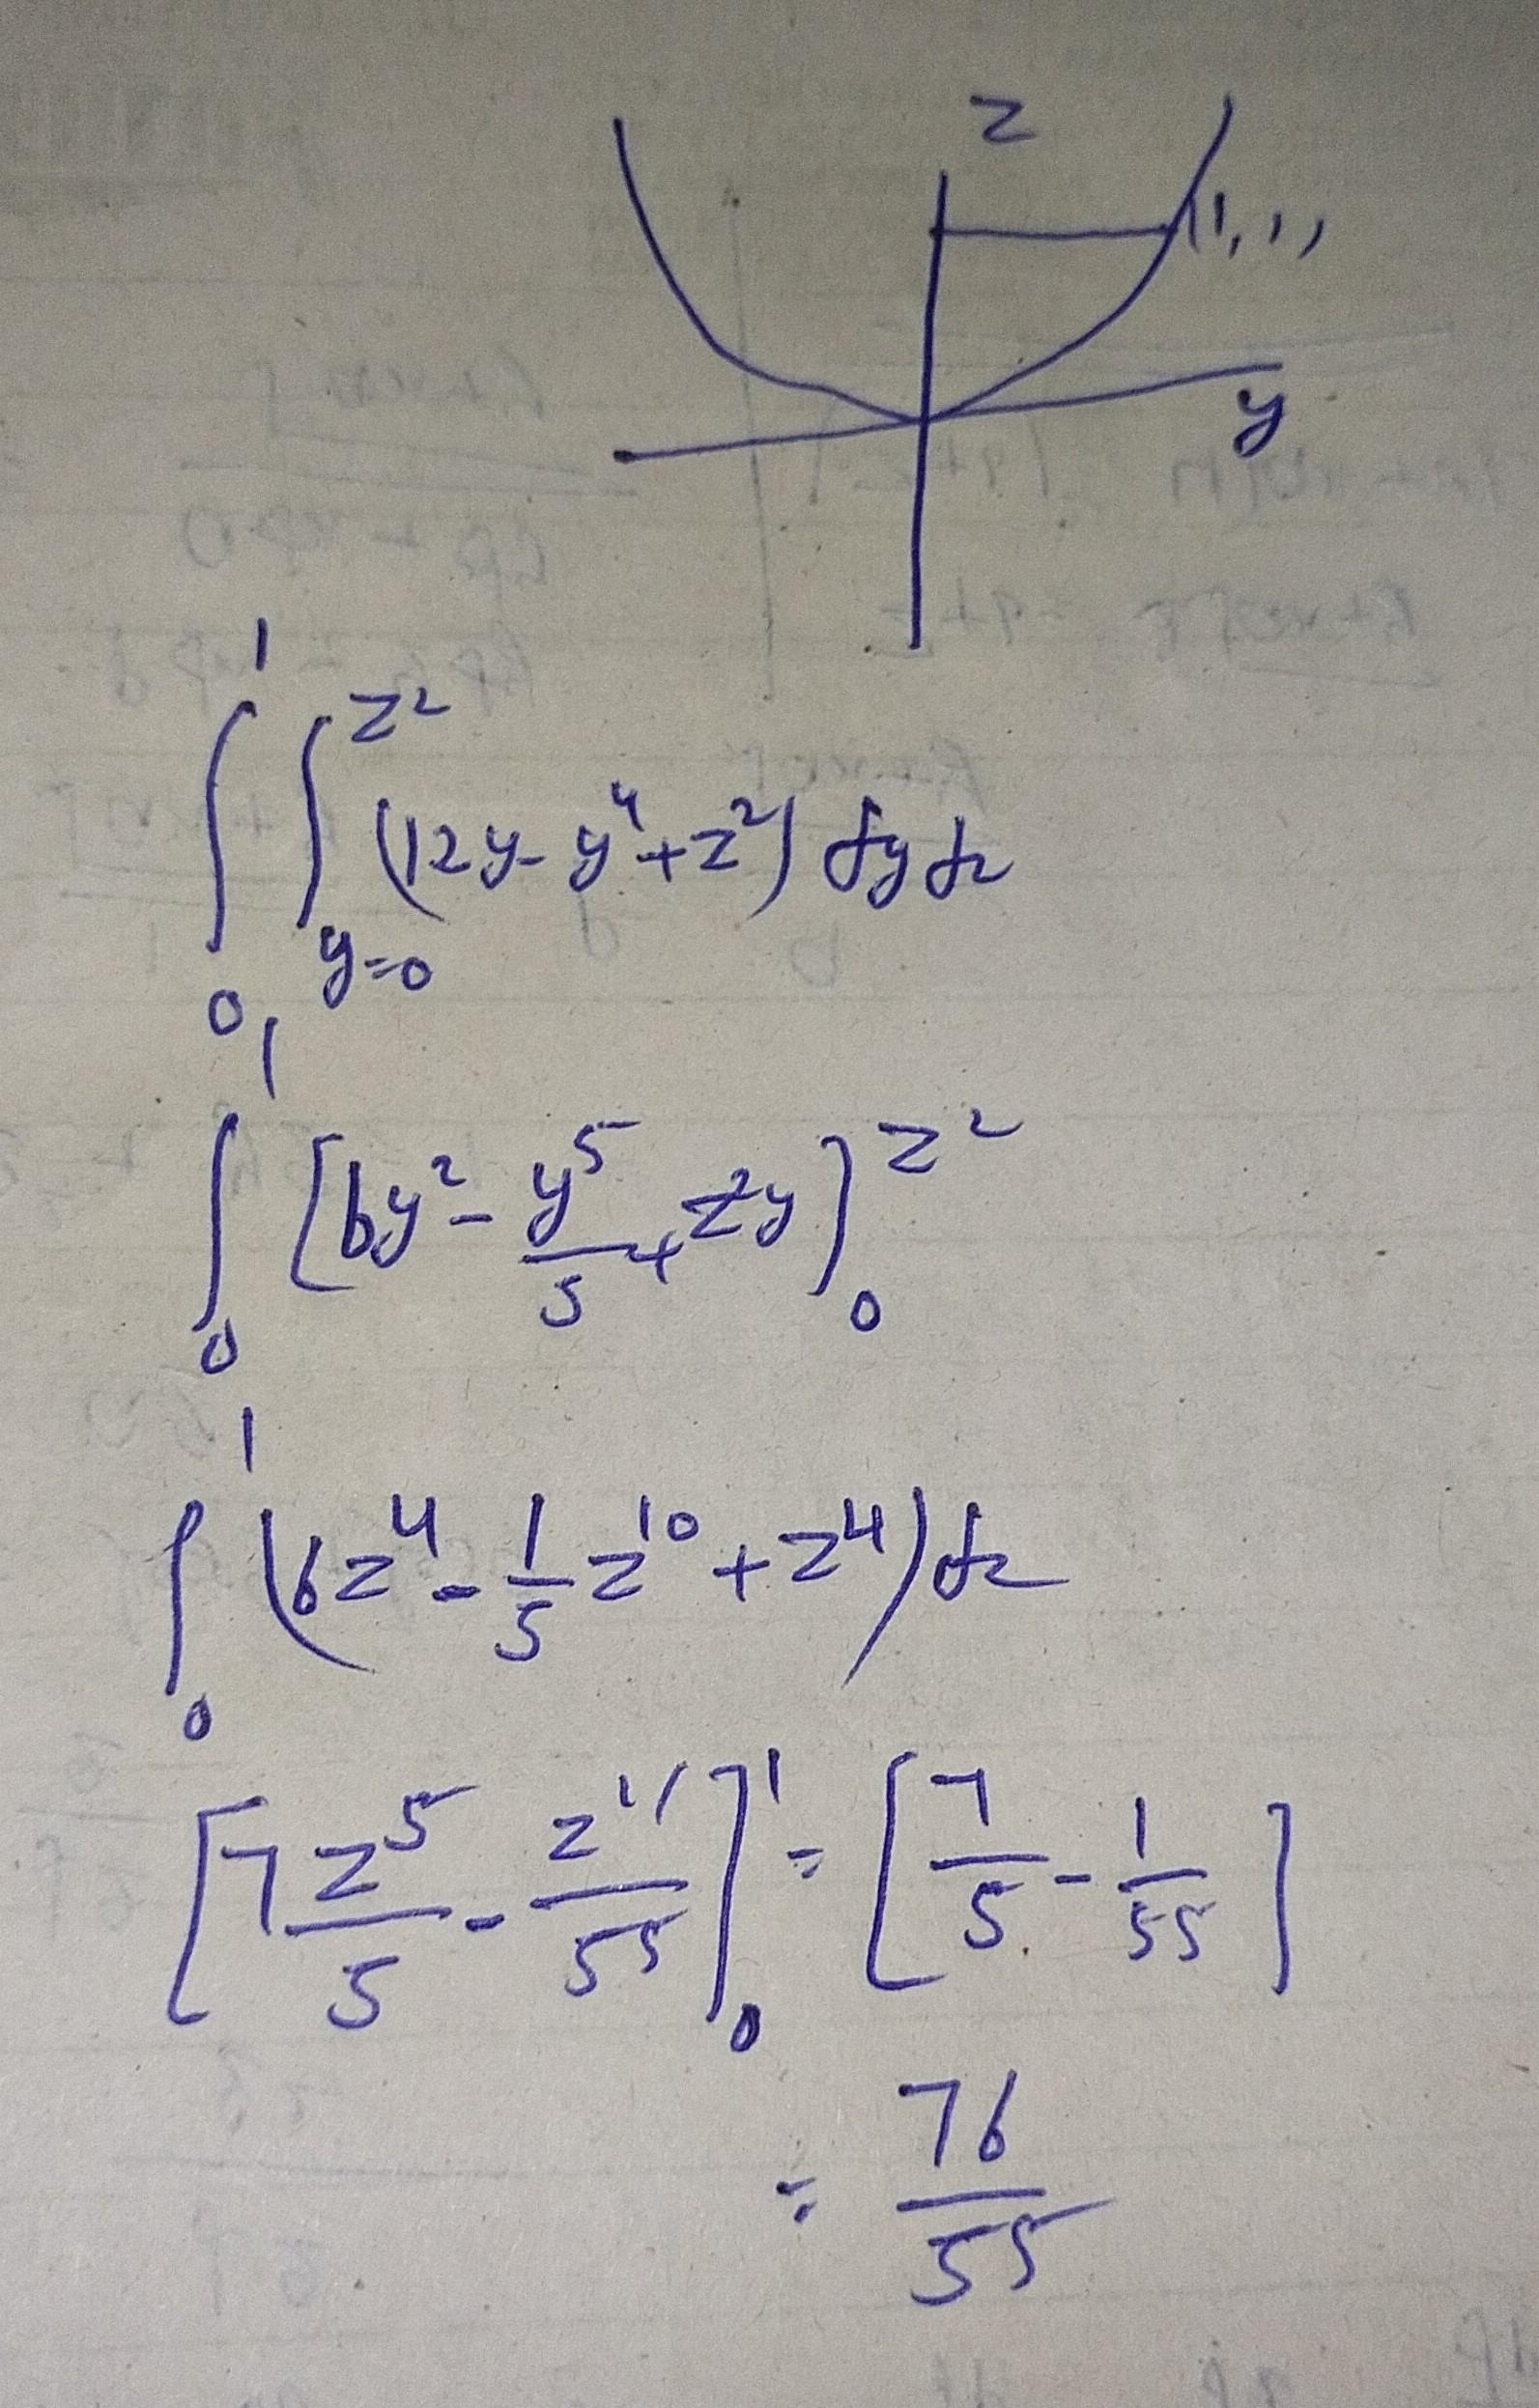 z
(1, 1)
y
∫₀¹ ∫_{y=0}^{z²} (12y - y⁴ + z²) dy dz
∫₀¹ [6y² - y⁵/5 + z²y]₀^{z²}
∫₀¹ (6z⁴ - 1/5 z¹⁰ + z⁴) dz
[7z⁵/5 - z¹¹/55]₀¹ = [7/5 - 1/55]
= 76/55